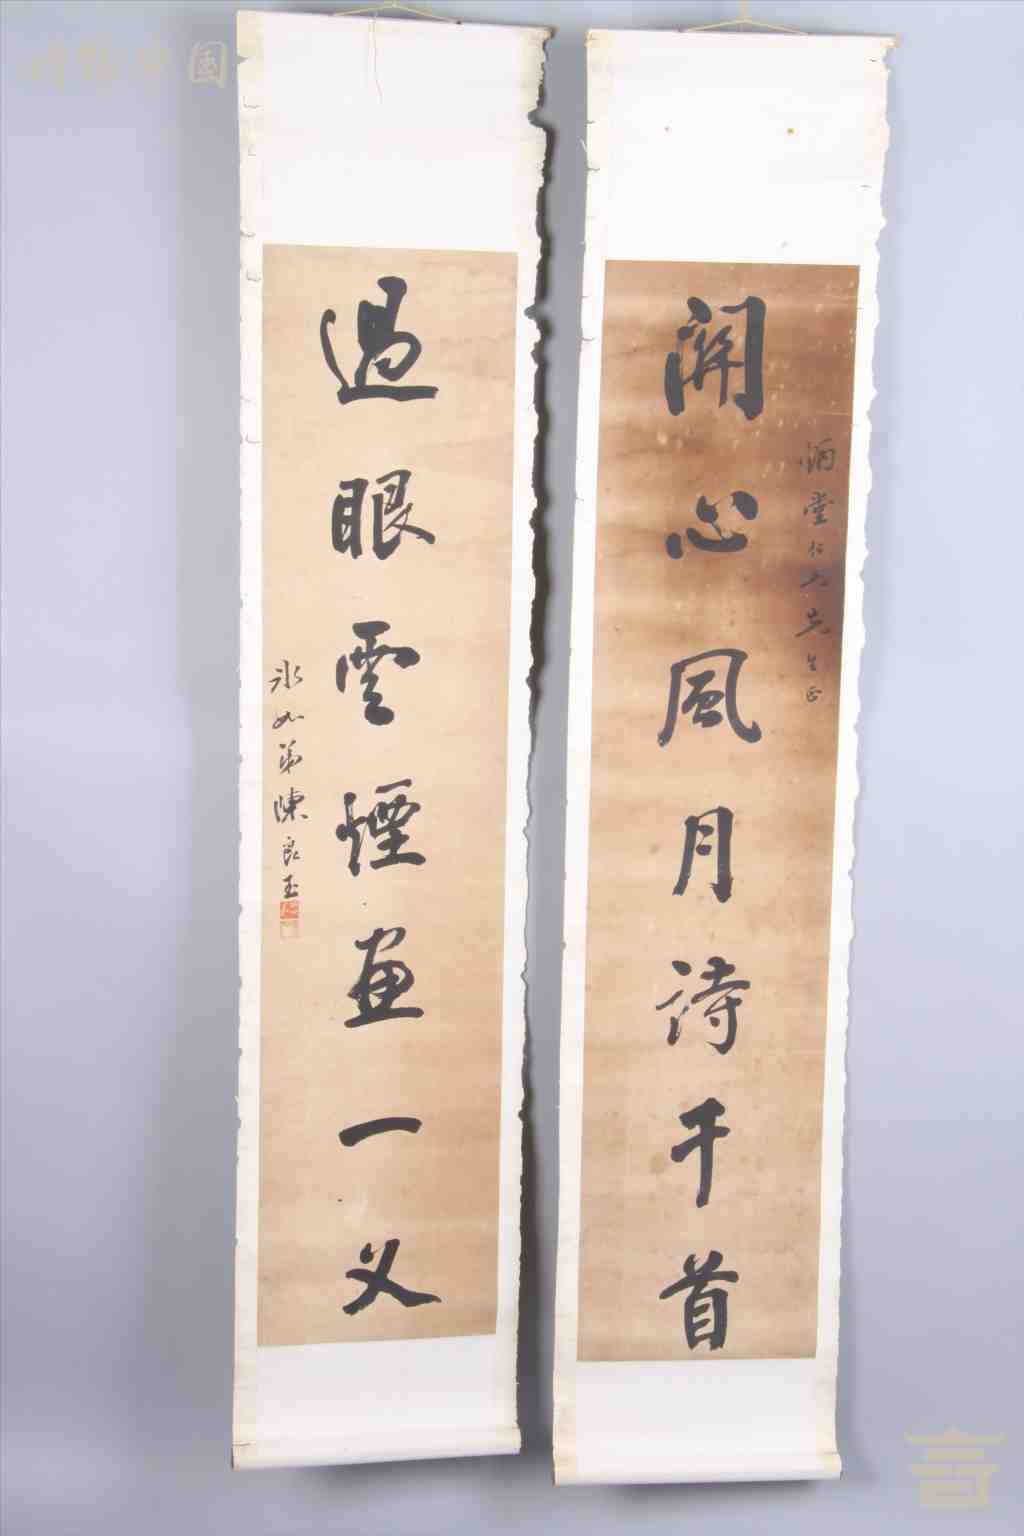 開心風月詩千首
酒堂仁大先生正
過眼雲煙畫一叉
冰如弟陳良玉